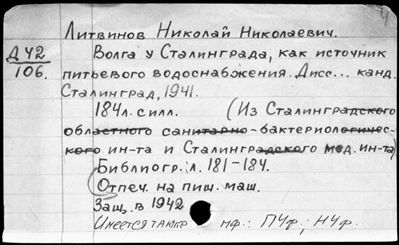 Литвинов Николай Николаевич.
Д42
106.
Волга у Сталинграда, как источник
питьевого водоснабжения. Дисс... канд.
Сталинград, 1941.
184л. с илл. (Из Сталинградского
областного санитарно-бактериологичес-
кого ин-та и Сталинградского мед. ин-та)
Библиогр.: л. 181-184.
Отпеч. на пиш. маш.
Защ. в 1942
Имеется также мф.: ПЧф; НЧф.